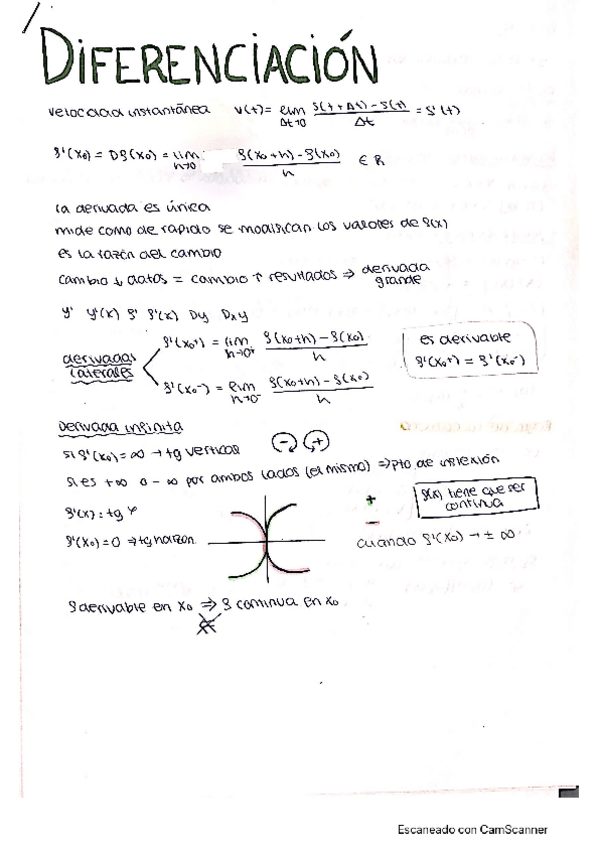 DIFERENCIACIÓN
velocidad instantánea v(t) = lim Δt→0 f(t+Δt) - f(t) / Δt = f'(t)
f'(x₀) = Df(x₀) = lim h→0 f(x₀+h) - f(x₀) / h ∈ R
la derivada es única
mide como de rapido se modifican los valores de f(x)
es la razón del cambio
cambio ↓ datos = cambio ↑ resultados ⇒ derivada grande
y' y'(x) f' f'(x) Dy Dxy
derivadas laterales
f'(x₀⁺) = lim h→0⁺ f(x₀+h) - f(x₀) / h
f'(x₀⁻) = lim h→0⁻ f(x₀+h) - f(x₀) / h
es derivable
f'(x₀⁺) = f'(x₀⁻)
Derivada infinita
si f'(x₀) = ∞ → tg vertical - +
si es +∞ o -∞ por ambos lados (el mismo) ⇒ pto de inflexión
f'(x) = tg φ
f'(x₀) = 0 ⇒ tg horizon.
+
-
f(x) tiene que ser continua
cuando f'(x₀) → ± ∞
f derivable en x₀ ⇒ f continua en x₀
⇍
Escaneado con CamScanner